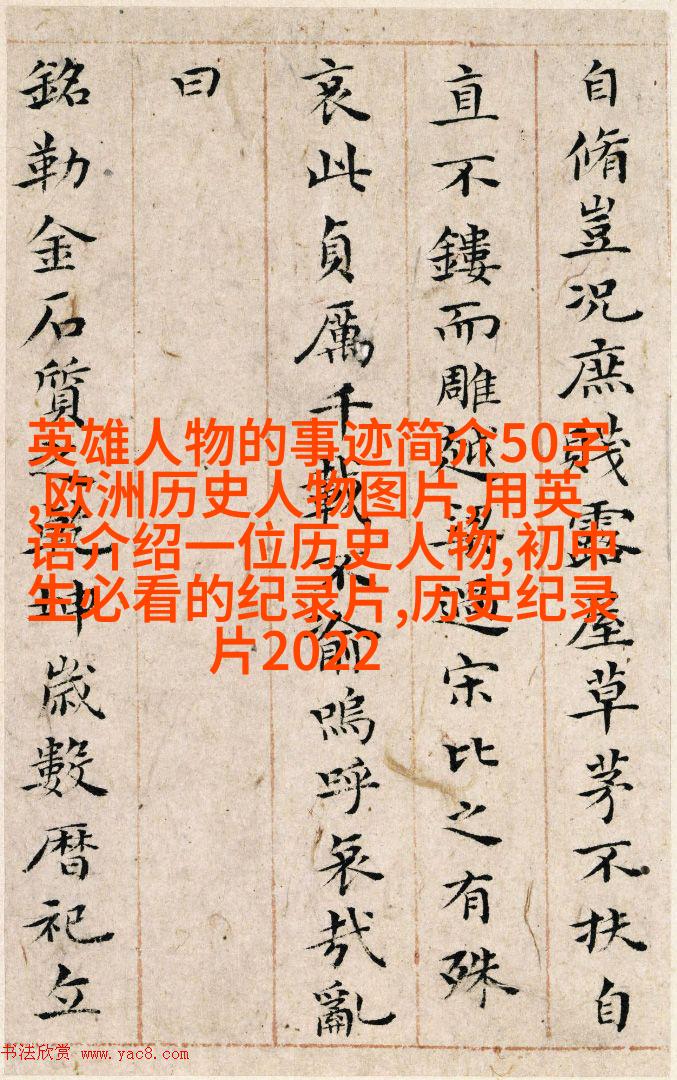 自脩豈况庶賤露屋草茅不扶自
直不鏤而雕越梁過宋比之有殊
哀此貞厲千載不渝嗚呼哀哉亂
曰
銘勒金石質之乾坤歲數曆祀立
英雄人物的事迹简介50字
,欧洲历史人物图片,用英
语介绍一位历史人物,初中
生必看的纪录片,历史纪录
片2022
书法欣赏 www.yac8.com